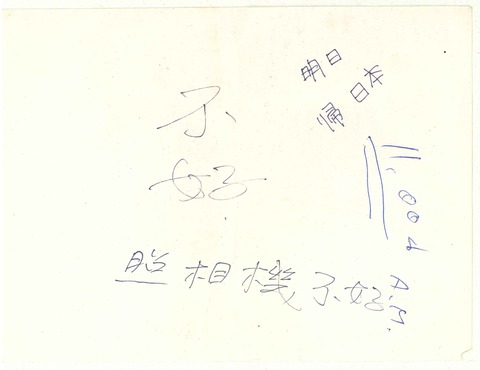 明日
帰日本
不
好
11.00
A.M.
照相機不好